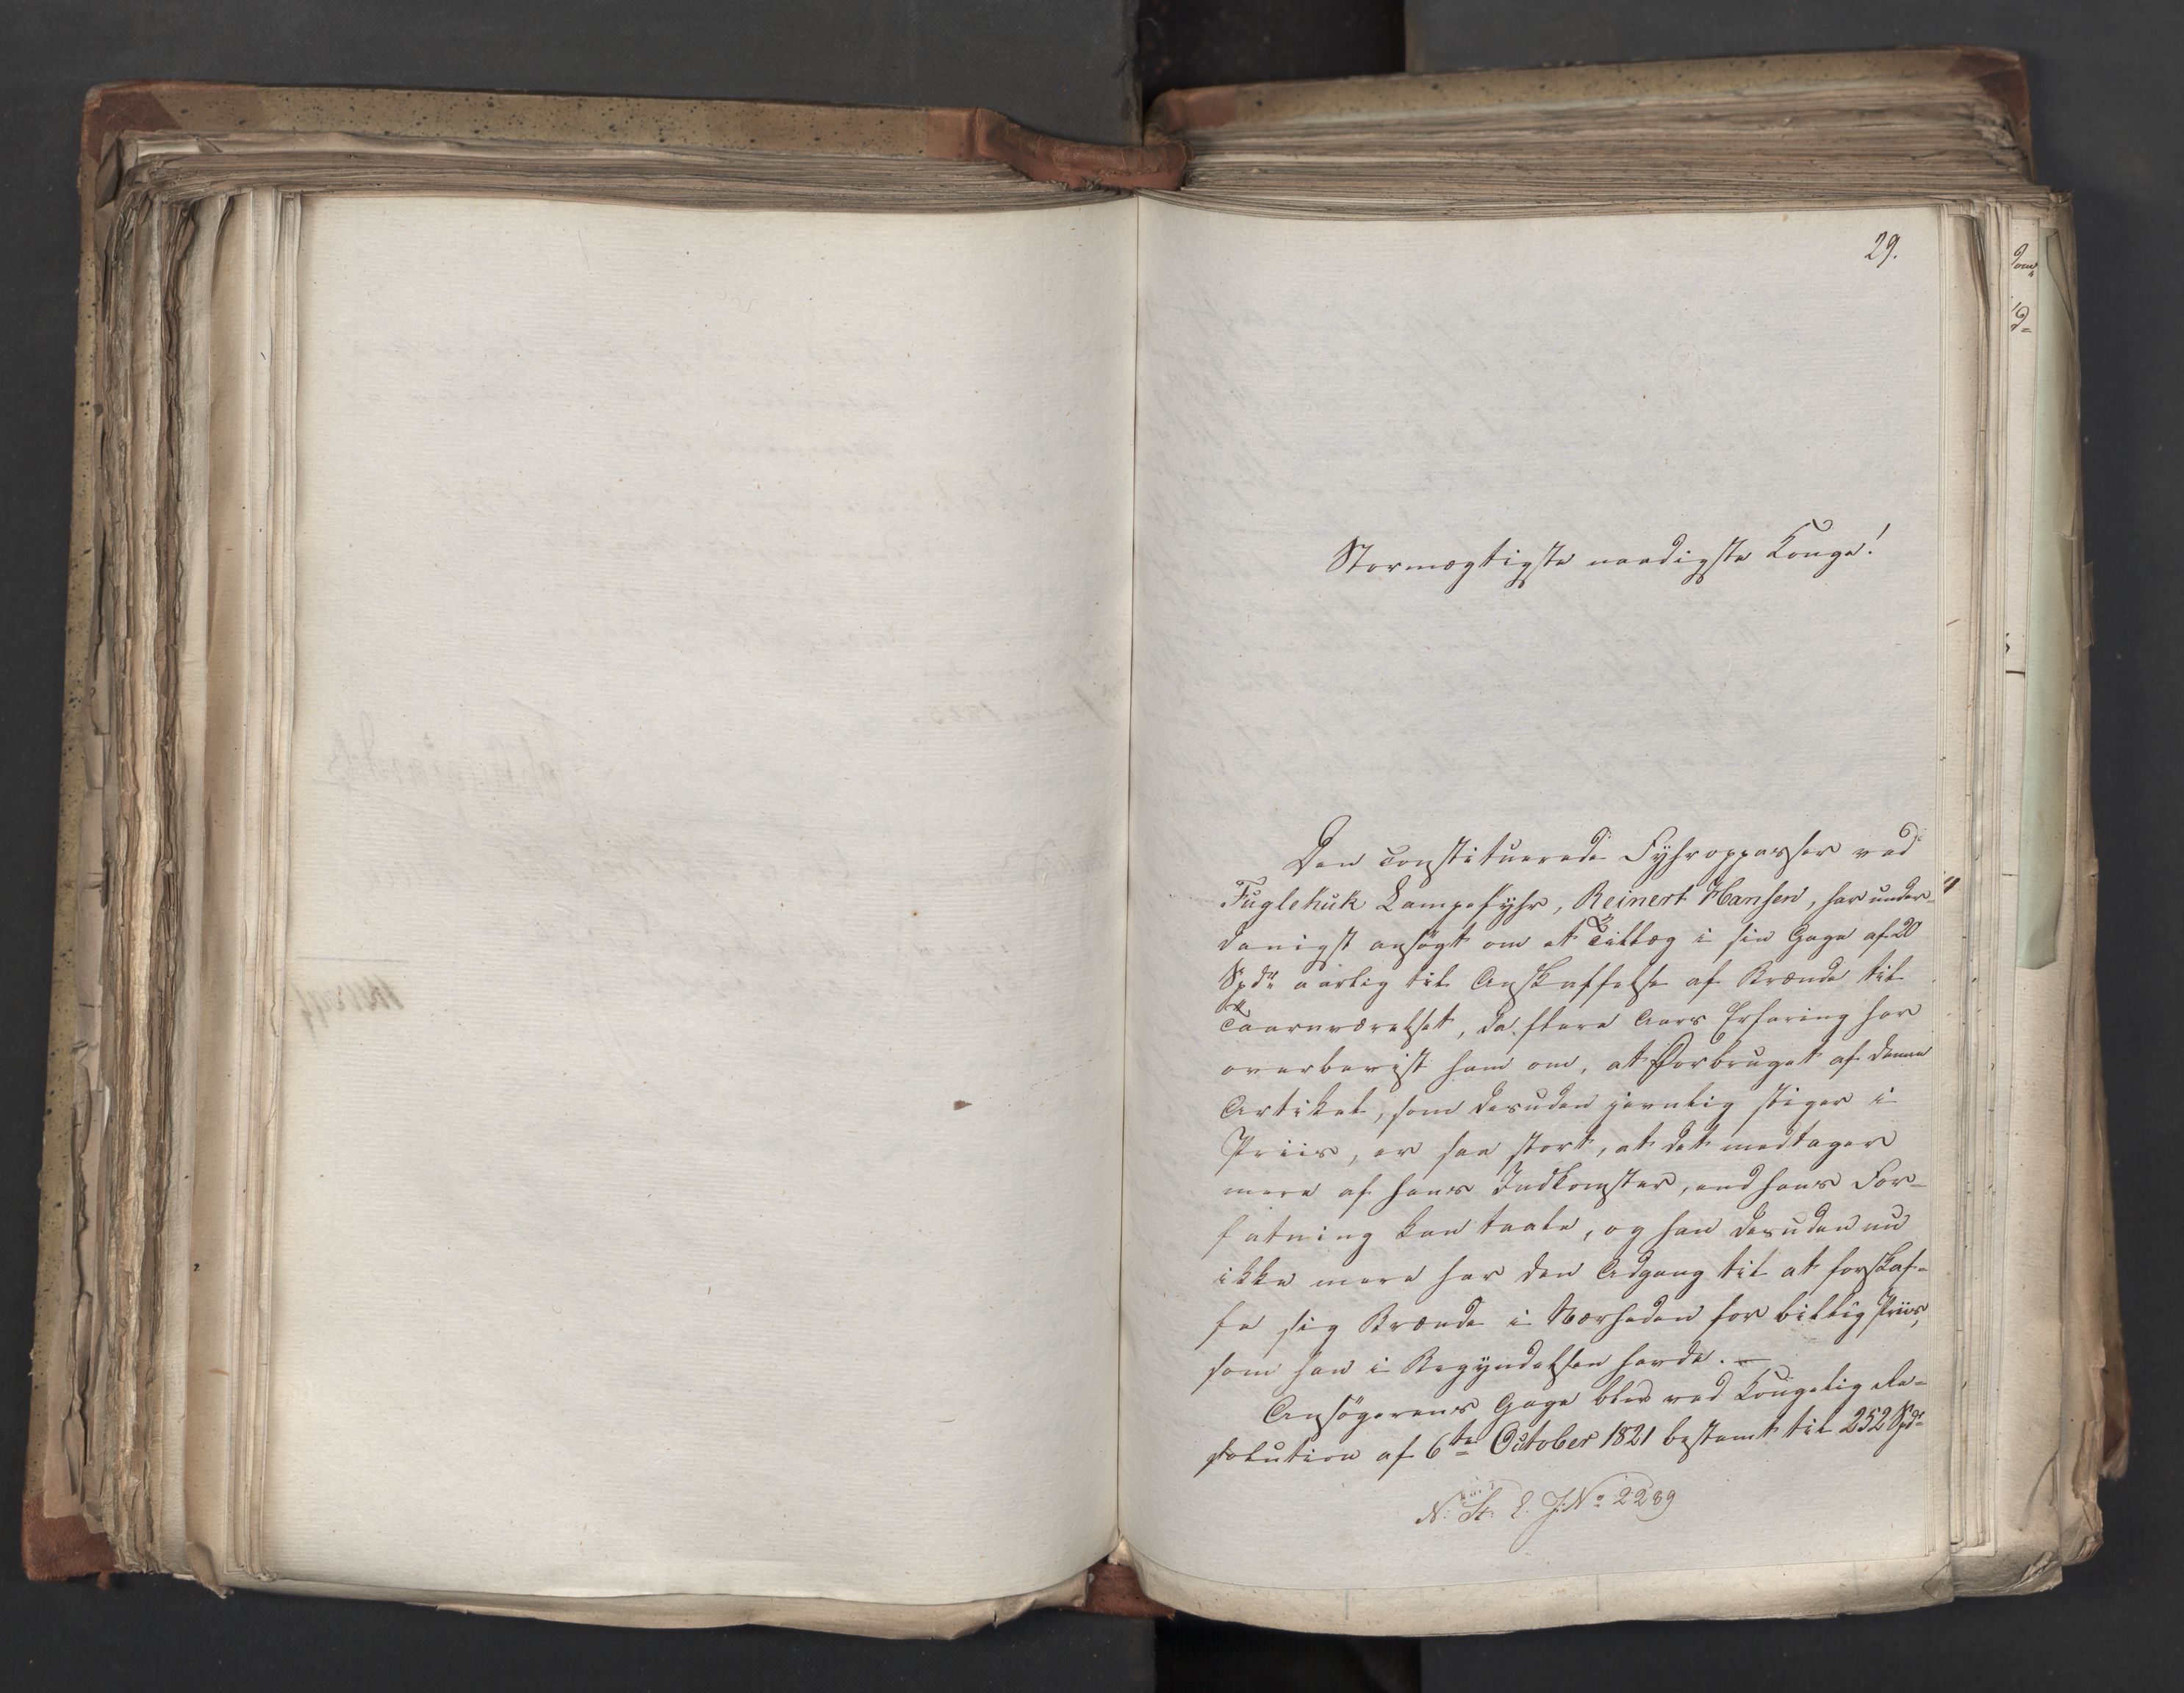 29.
Stormægtigste naadigste Konge!
Den constituerede Fyhropasser ved
Fuglehuk Lampefyhr, Reinert Hansen, har under-
danigst ansøgt om et Tillæg i sin Gage af 20
Spd aarlig til Anskaffelse af Brænde til
Taarnværelset, da flere Aars Erfaring har
overbeviist ham om, at Forbruget af denne
Artikel, som desuden jevnlig stiger i
Priis, er saa stort, at det medtager
mere af hans Indkomster, end hans For-
fatning kan taale, og han desuden nu
ikke mere har den Adgang til at forskaf-
fe sig Brænde i Nærheden for billig Priis,
som han i Begyndelsen havde. —
Ansøgerens Gage blev ved Kongelig Re-
solution af 6te October 1821 bestemt til 252 Spd
N. St. E. J. No 2289